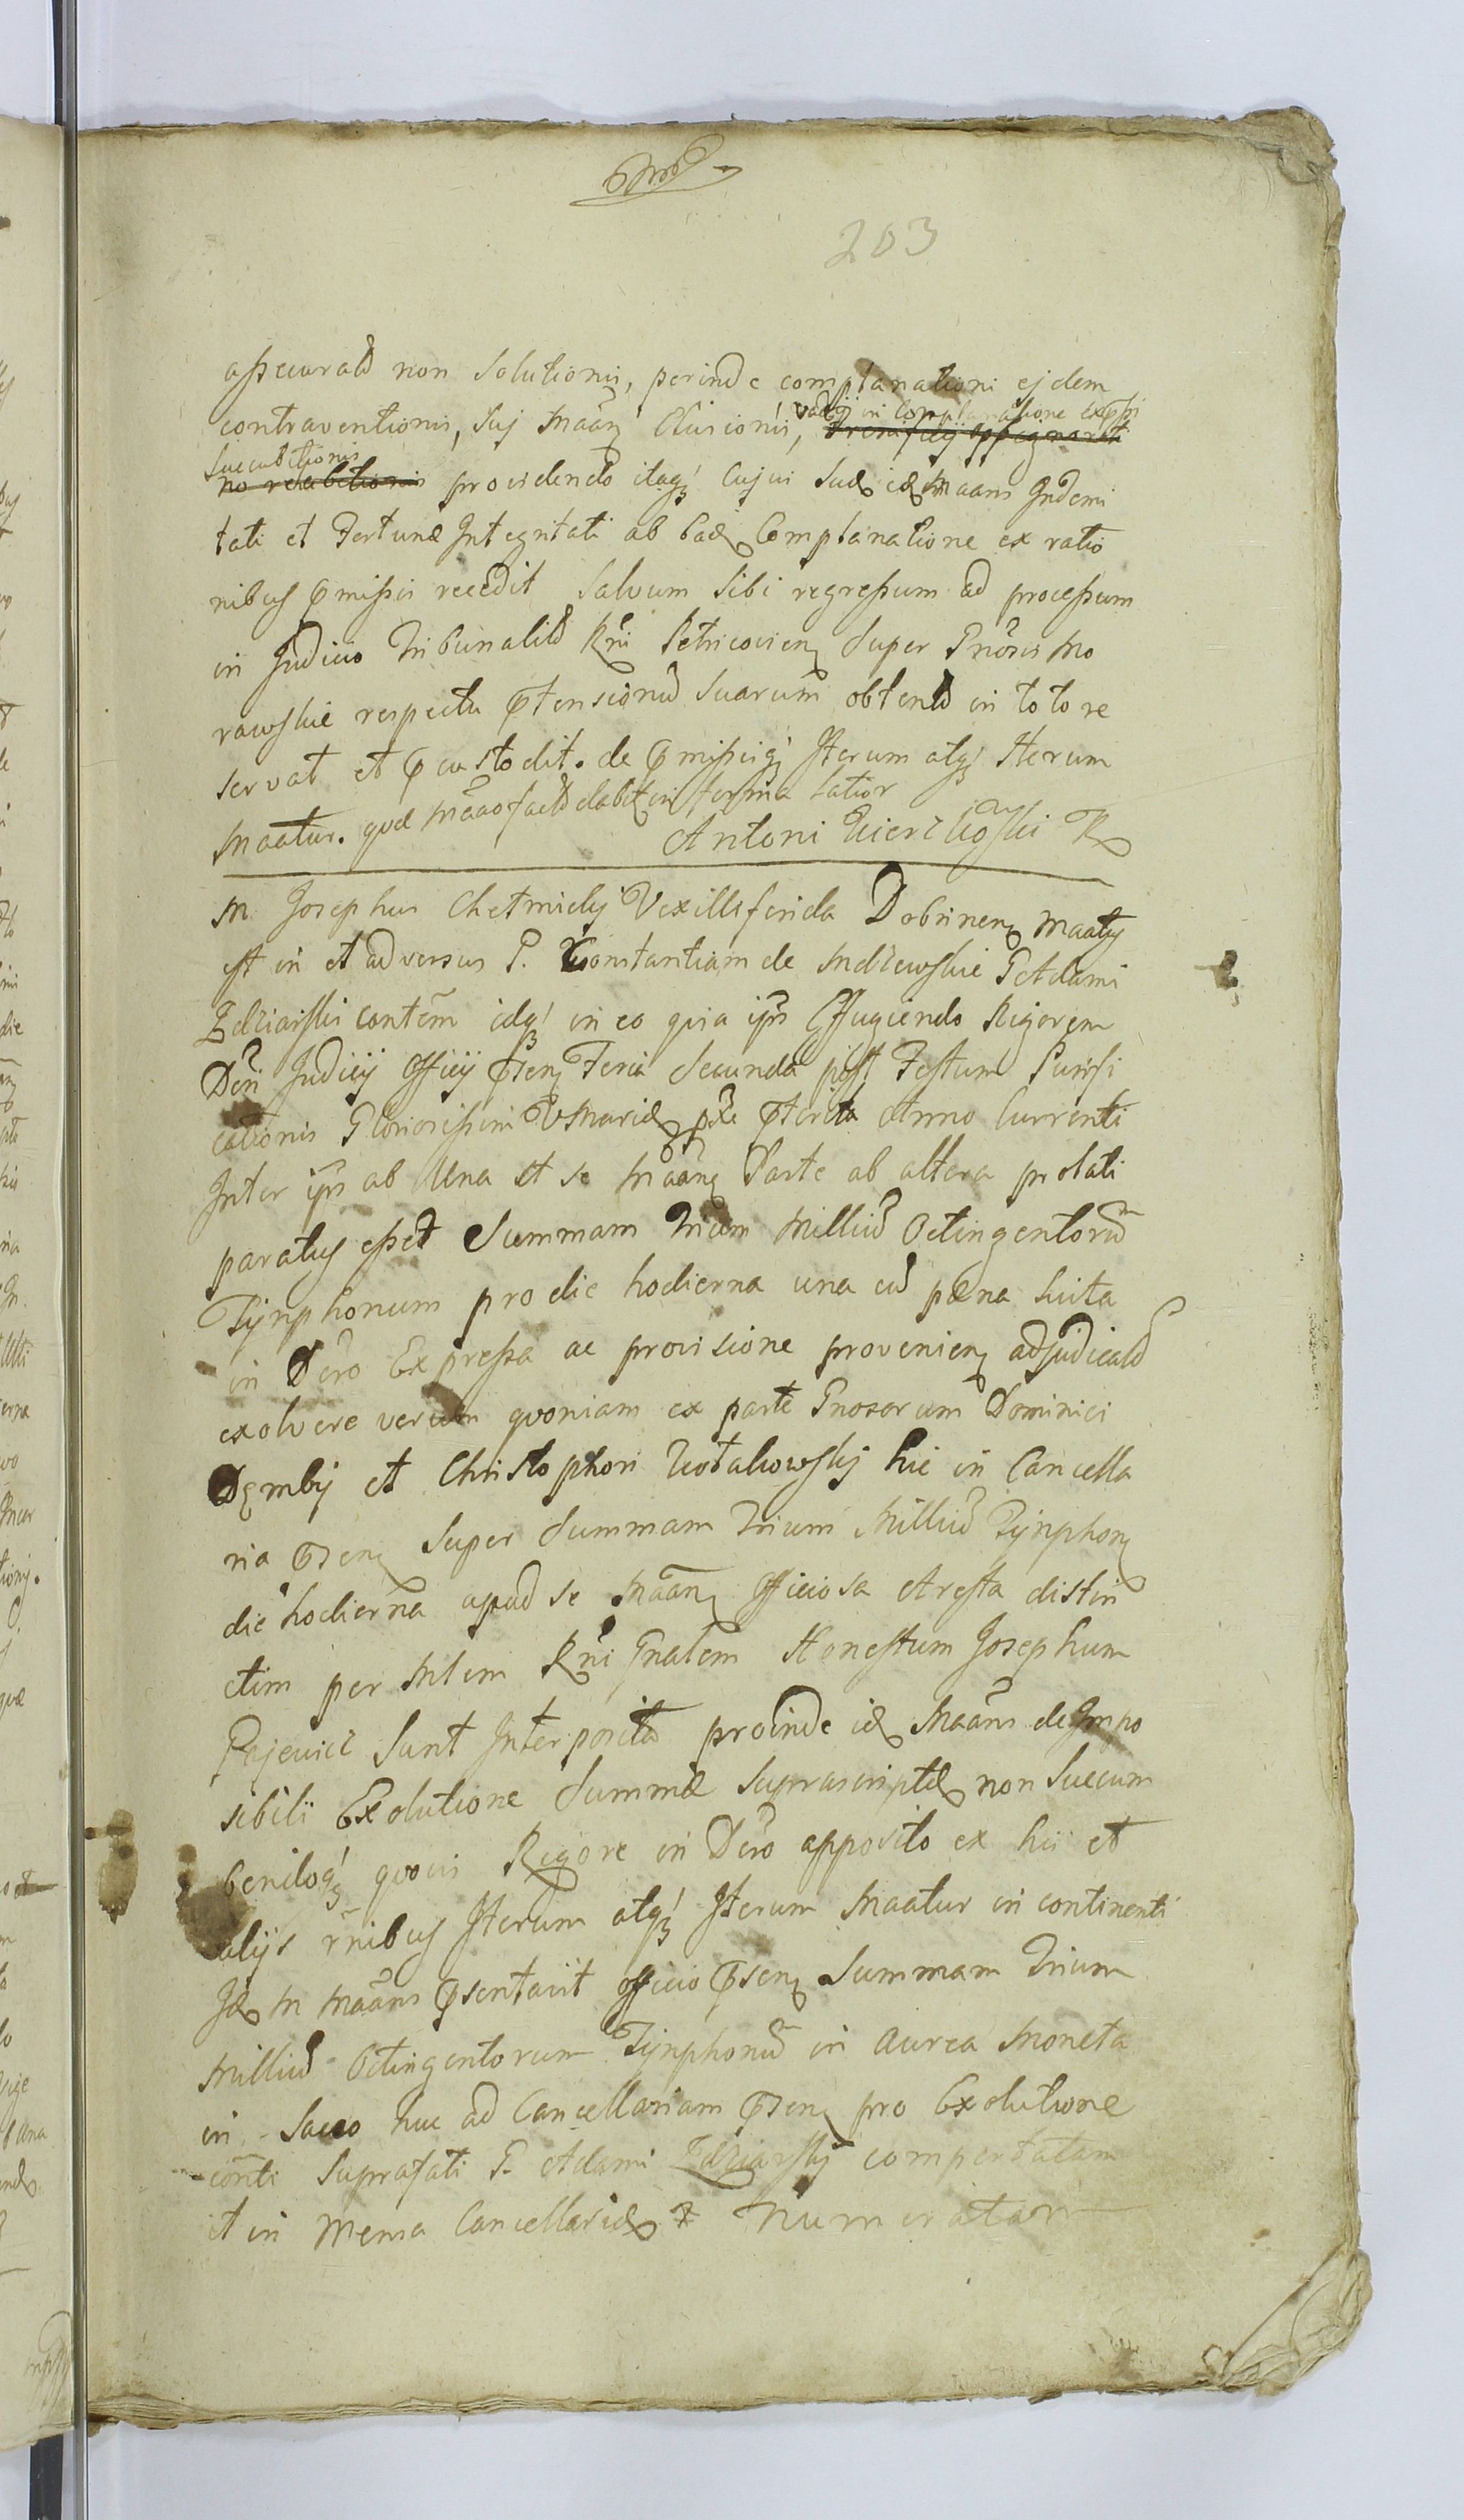 203
assecuratæ non Solutionis, perinde complanationi ejdem
vadij in Complanatione Expssi
contraventionis, Suj Maañ Elusionis,
Succubitionis
providendo itaq; Cujus Suæ id Maans Indemi
tati et Fortunæ Integritati ab Eadem Complanatione ex ratio
nibus pmissis recedit Salvum Sibi regressum ad processum
in Judicio Tribunalitio Rñi Petricovien Super Gnosis Mo
rawskie respectu ptensionum Suarum obtento in toto re
servat et pcustodit. de pmissisq; Iterum atq; Iterum
Maatur. quæ Maaõ facta dabit in forma latior
Antoni
M. Josephus Chełmicky Vexilliferida Dobrinen Maatus
est in et adversus G. Constantiam de Mdzewskie G Adami
Zdziarski contem idq; in eo quia ips Effugiendo Rigorem
Dẽri Judicij Officij psen Feria Secunda post Festum Purifi
cationis Gloriosissimæ V Mariæ pxe pterita Anno Currenti
Inter ips ab Una et se Maañ Parte ab altera prolati
paratus esset Summam Trium Millium Octingentorum
Tynphonum pro die hodierna una cum pæna luita
in Dẽro Expressa ac provisione provenien adjudicata
exolvere verum quoniam ex parte Gnosorum Dominici
Dęmby et Christophori hic in Cancella
ria psen Super Summam Trium Millium Tynphon
die hodierna apud se Maañ Officiosa Aresta distin
ctim per Mlem Rñi Gnalem Honestum Josephum
Sunt Interposita proinde id Maans de Impo
sibili Exolutione Summæ Suprascriptæ non Succum
bendoq; quovis Rigore in Dẽro apposito ex his et
alijs rñibus Iterum atq; Iterum Maatur in continenti
Id M Maans psentavit officio psen Summam Trium
Millium Octingentorum Tynphonum in Aurea Moneta
in Sacco huc ad Cancellariam psen pro Exolutione
conti Suprafati G. Adami Zdziarsky comportatam
et in Mensa Cancellariæ numeratam